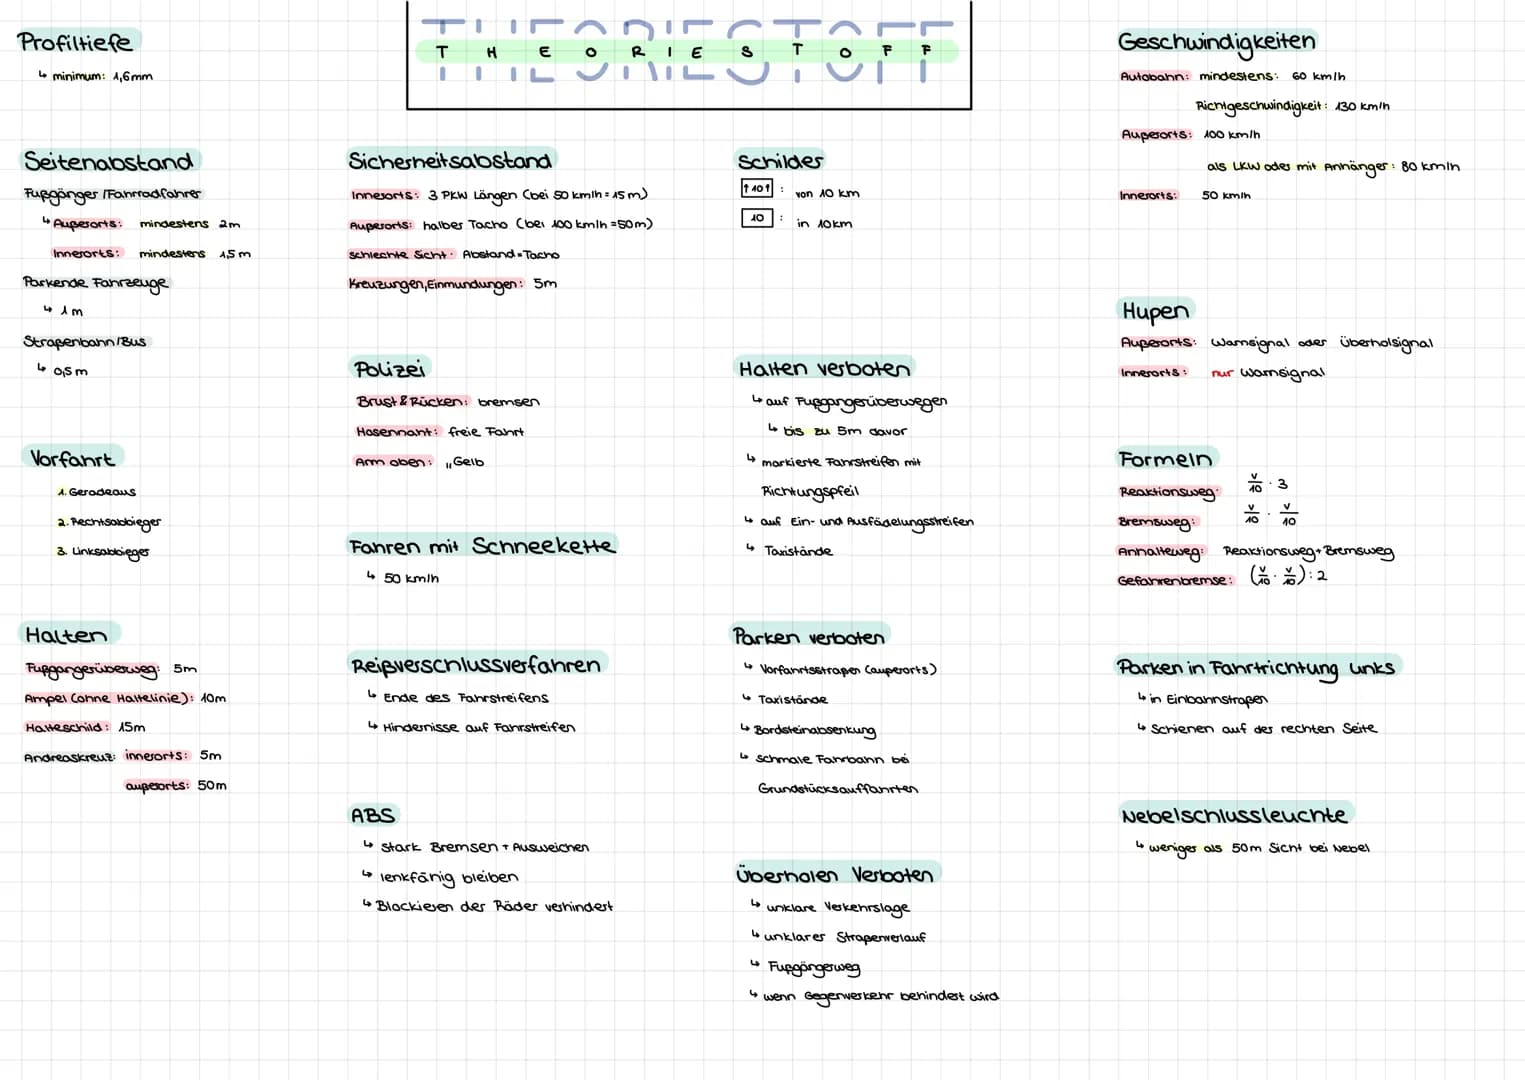 THEORIESTOFF
Profiltiefe
↳ minimum: 1,6mm
Seitenabstand
Fußgänger/Fahrradfahrer
↳ Außerorts: mindestens 2m
Innerorts: mindestens 1,5m
Parkende Fahrzeuge
↳ 1m
Straßenbahn/Bus
↳ 0,5m
Vorfahrt
1. Geradeaus
2. Rechtsabbieger
3. Linksabbieger
Halten
Fußgangerüberweg: 5m
Ampel (ohne Haltelinie): 10m
Halteschild: 15m
Andreaskreuz: innerorts: 5m
außerorts: 50m
Sicherheitsabstand
Innerorts: 3 PKW Längen (bei 50 km/h = 15m)
Außerorts: halber Tacho (bei 100 km/h = 50m)
schlechte Sicht: Abstand = Tacho
Kreuzungen, Einmundungen: 5m
Polizei
Brust & Rücken: bremsen
Hosennaht: freie Fahrt
Arm oben: „Gelb
Fahren mit Schneekette
↳ 50 km/h
Reißverschlussverfahren
↳ Ende des Fahrstreifens
↳ Hindernisse auf Fahrstreifen
ABS
↳ stark Bremsen + Ausweichen
↳ lenkfähig bleiben
↳ Blockieren der Räder verhindert
Schilder
↑10↑ : von 10 km
10 : in 10km
Halten verboten
↳ auf Fußgangerüberwegen
↳ bis zu 5m davor
↳ markierte Fahrstreifen mit
Richtungspfeil
↳ auf Ein- und Ausfädelungsstreifen
↳ Taxistände
Parken verboten
↳ Vorfahrtsstraßen (außerorts)
↳ Taxistände
↳ Bordsteinabsenkung
↳ schmale Fahrbahn bei
Grundstücksauffahrten
Überholen Verboten
↳ unklare Verkehrslage
↳ unklarer Straßenverlauf
↳ Fußgängerweg
↳ wenn Gegenverkehr behindert wird
Geschwindigkeiten
Autobahn: mindestens: 60 km/h
Richtgeschwindigkeit: 130 km/h
Außerorts: 100 km/h
als LKW oder mit Anhänger: 80 km/h
Innerorts: 50 km/h
Hupen
Außerorts: Warnsignal oder Überholsignal
Innerorts: nur Warnsignal
Formeln
Reaktionsweg: v/10 · 3
Bremsweg: v/10 · v/10
Anhalteweg: Reaktionsweg + Bremsweg
Gefahrenbremse: (v/10 · v/10) : 2
Parken in Fahrtrichtung links
↳ in Einbahnstraßen
↳ Schienen auf der rechten Seite
Nebelschlussleuchte
↳ weniger als 50m Sicht bei Nebel